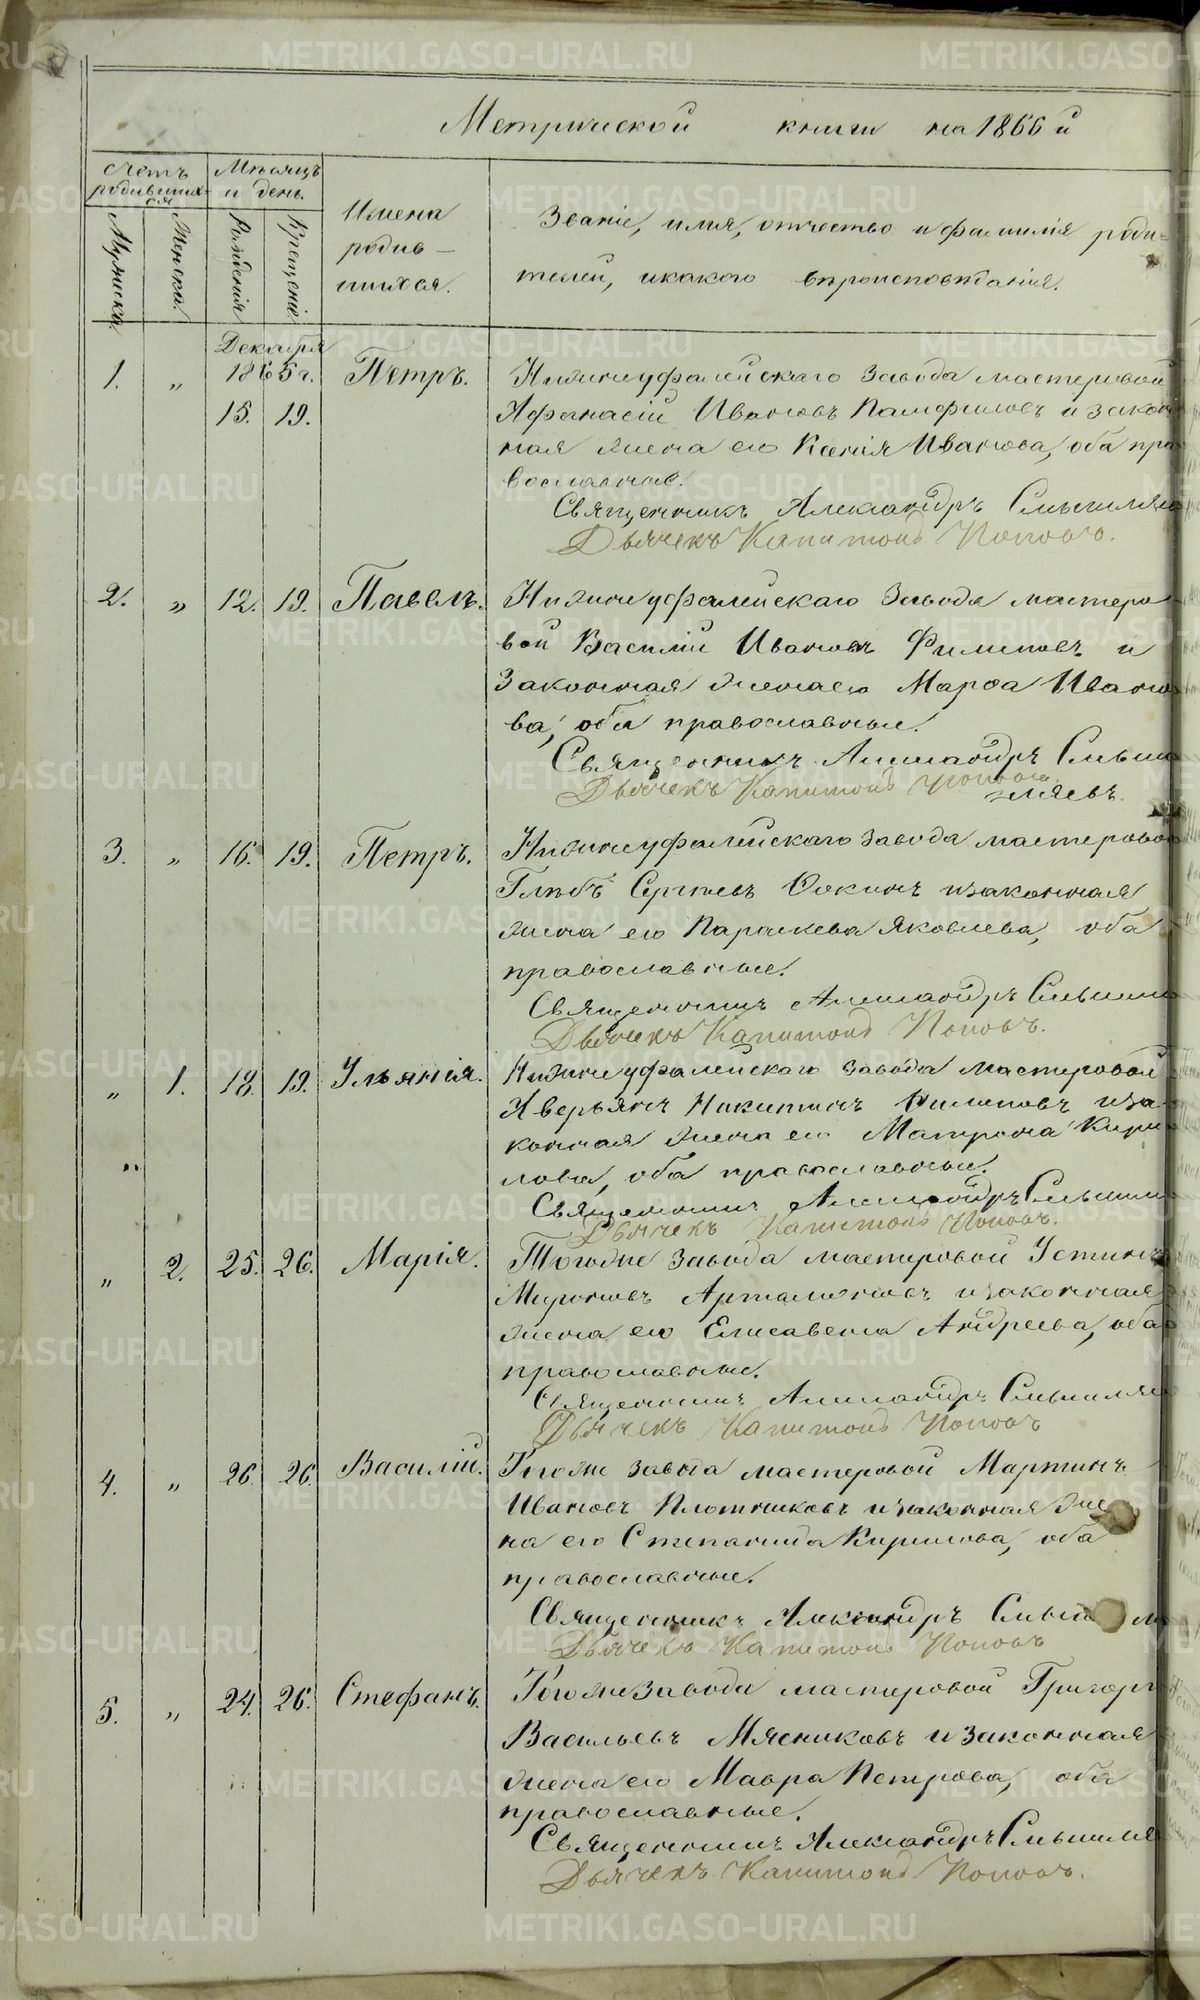 Метрической книги на 1866 й
Счетъ родившихся
Мѣсяцъ и день
Мужска.
Женска.
Рожденія
Крещенія
Имена родив-
шихся.
Званіе, имя, отчество и фамилія роди-
телей, и какого вѣроисповѣданія.
Декабря
1865 г.
1. „ 15. 19. Петръ.
Нижнеуфалейскаго завода мастеровой
Афанасій Ивановъ Памфиловъ и закон
ная жена его Ксенія Иванова, оба пра
вославные.
Священникъ Александръ Смышляев
Дьячекъ Капитонъ Поповъ.
2. „ 12. 19. Павелъ.
Нижнеуфалейскаго завода мастеро-
вой Василій Ивановъ Филиповъ и
законная жена его Марѳа Ивано
ва, оба православные.
Священникъ Александръ Смыш
Дьячекъ Капитонъ Поповъ.
ляевъ.
3. „ 16. 19. Петръ.
Нижнеуфалейскаго завода мастерово
Глѣбъ Сергѣевъ и законная
жена его Параскева Яковлева, оба
православные.
Священникъ Александръ Смышл
Дьячекъ Капитонъ Поповъ.
„ 1. 18. 19. Ульянія.
Нижнеуфалейскаго завода мастеровой
Аверьянъ Никитинъ Филиповъ и за-
конная жена его Матрона Кири
лова, оба православные.
Священникъ Александръ Смышл
Дьячекъ Капитонъ Поповъ.
„ 2. 25. 26. Марія.
Тогоже завода мастеровой Устинъ
Мироновъ Артамоновъ и законная
жена его Елисавета Андреева, оба
православные.
Священникъ Александръ Смышляе
Дьячекъ Капитонъ Поповъ
4. „ 26. 26. Василій.
Тогоже завода мастеровой Мартинъ
Ивановъ Плотниковъ и законная же
на его Степанида Кирилова, оба
православные.
Священникъ Александръ Смыш л
Дьячекъ Капитонъ Поповъ
5. „ 24. 26. Стефанъ.
Тогоже завода мастеровой Григорі
Васильевъ Мясниковъ и законная
жена его Мавра Петрова, оба
православные.
Священникъ Александръ Смышля
Дьячекъ Капитонъ Поповъ.
METRIKI.GASO-URAL.RU